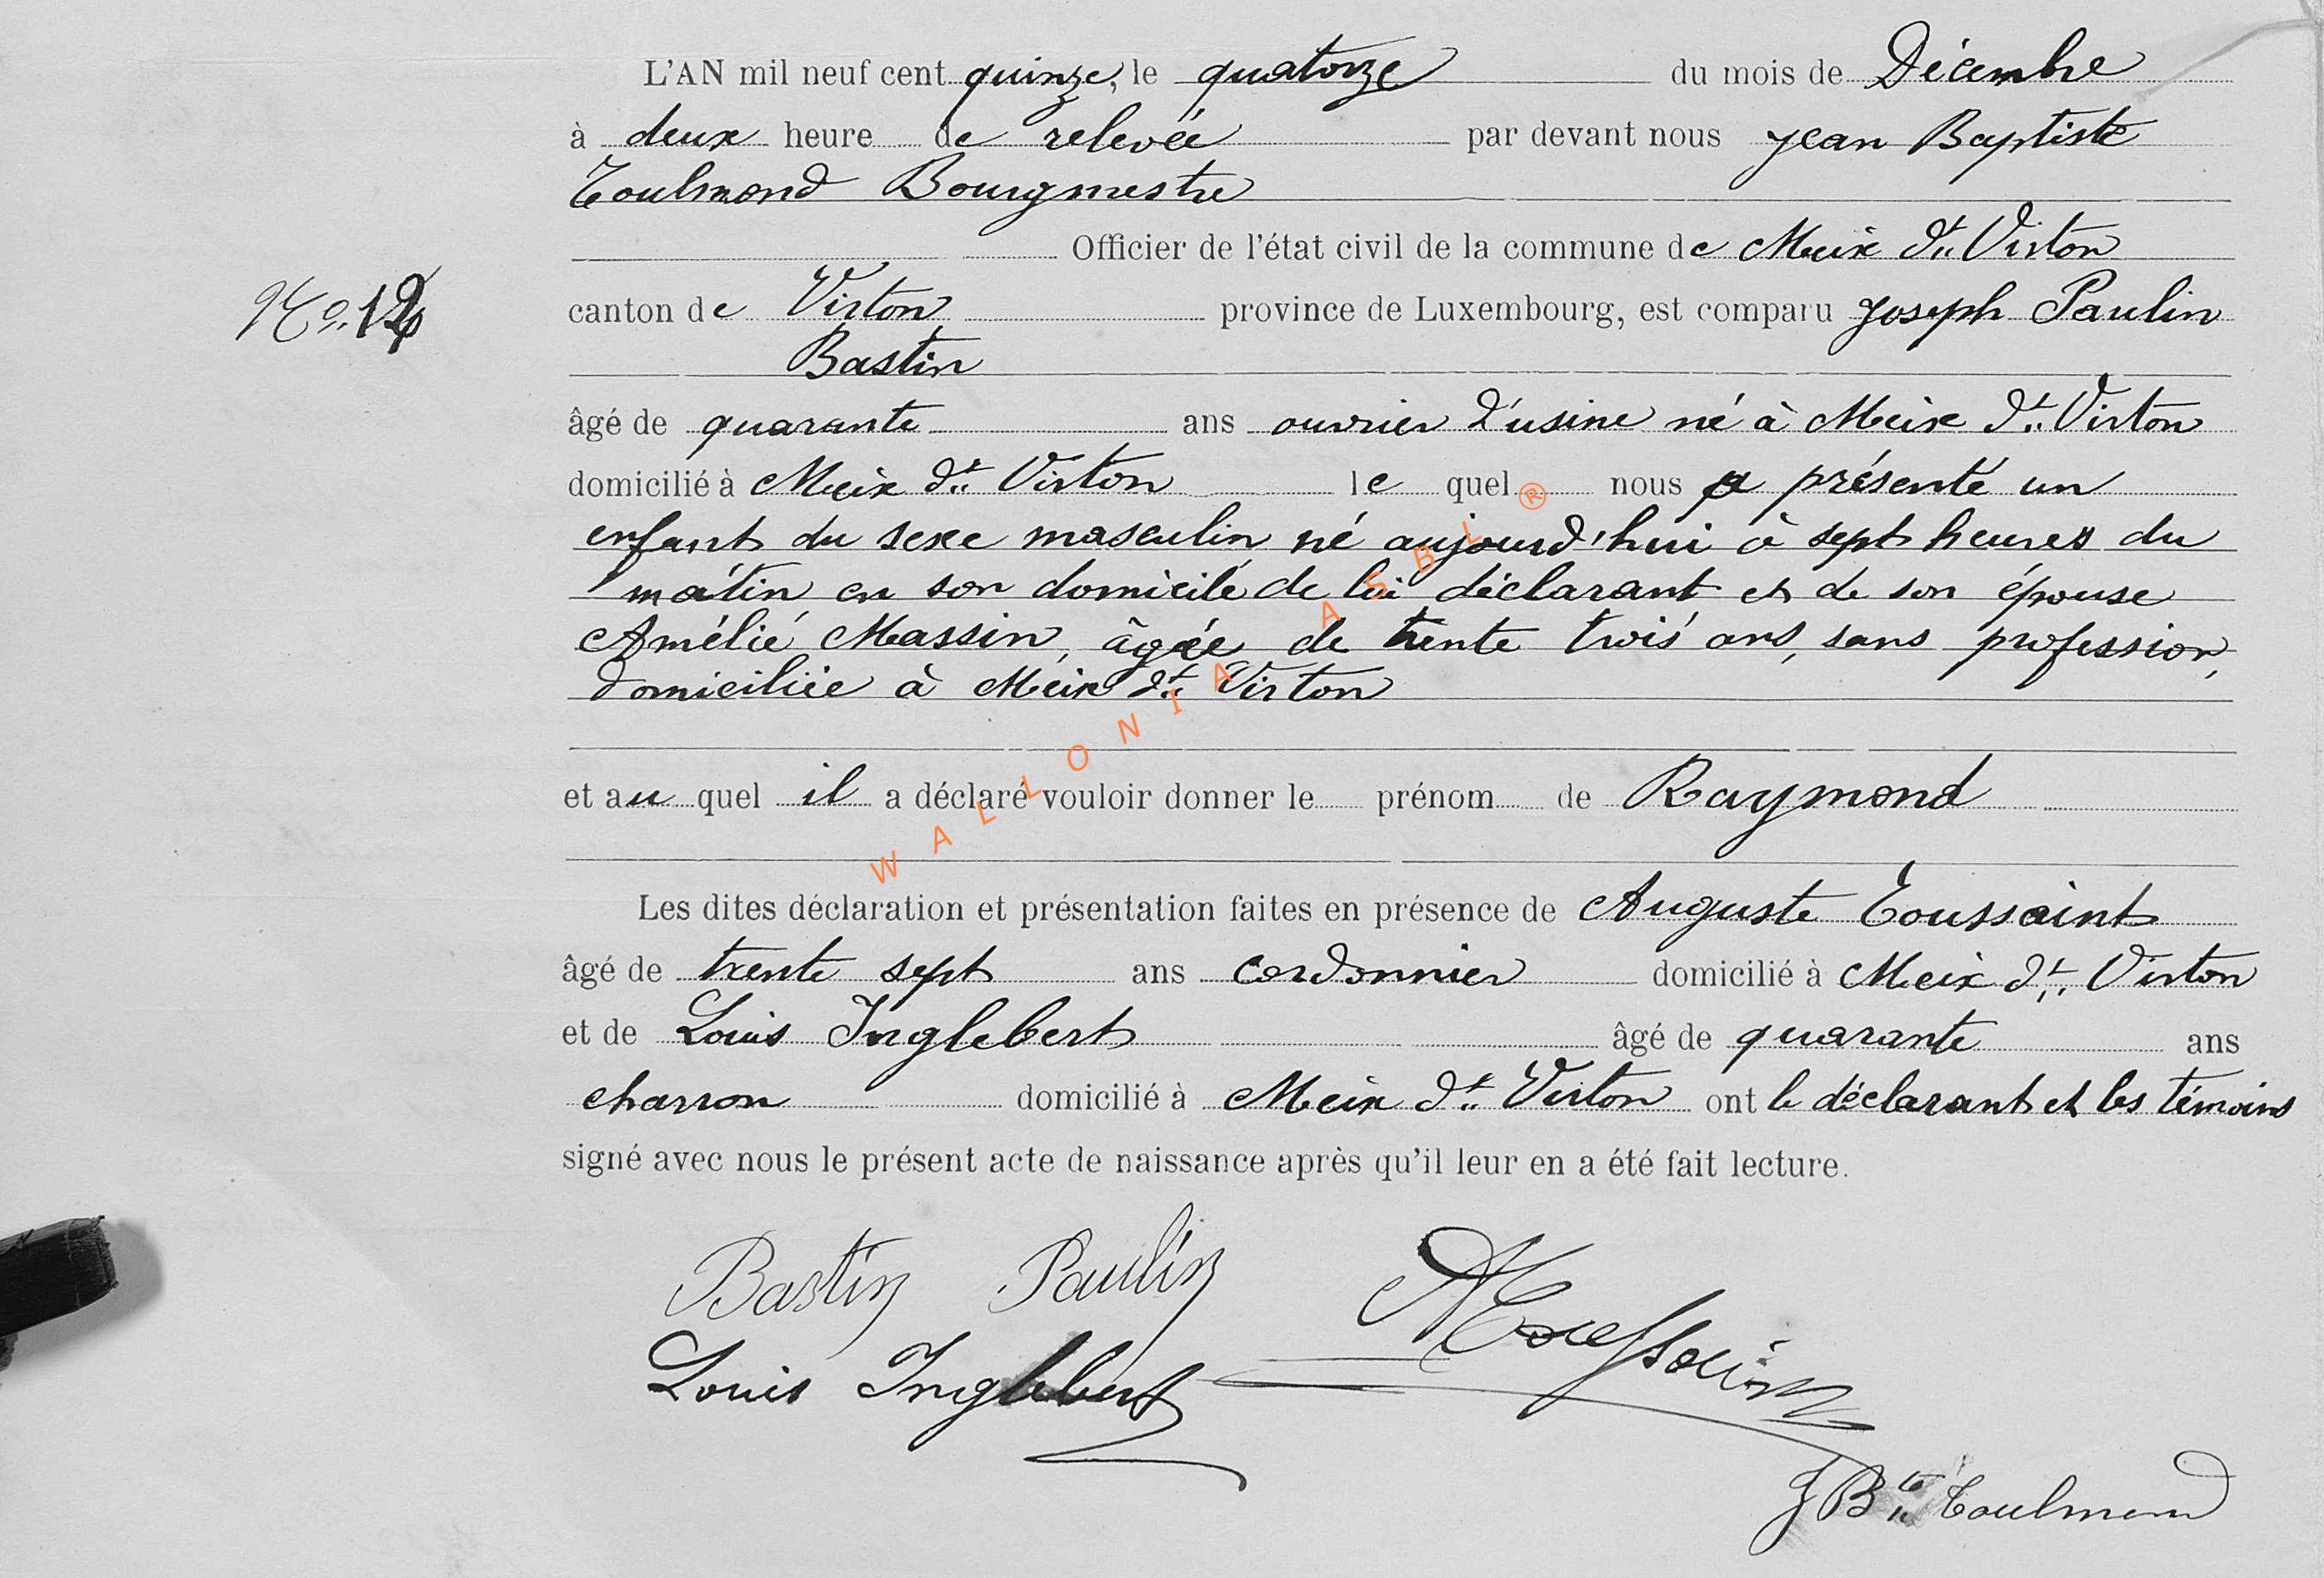 L'AN mil neuf cent quinze, le quatorze du mois de Décembre
à deux heure de relevée par devant nous Jean Baptiste
Toulmond Bourgmestre
Officier de l'état civil de la commune de Meix dt Virton
No. 12
canton de Virton province de Luxembourg, est comparu Joseph Paulin
Bastin
âgé de quarante ans ouvrier d'usine né à Meix dt Virton
domicilié à Meix dt Virton le quel nous a présenté un
enfant du sexe masculin né aujourd'hui à sept heures du
matin en son domicile de lui déclarant et de son épouse
Amélie Massin, âgée de trente trois ans, sans profession,
domiciliée à Meix dt Virton
et au quel il a déclaré vouloir donner le prénom de Raymond
Les dites déclaration et présentation faites en présence de Auguste Toussaint
âgé de trente sept ans cordonnier domicilié à Meix dt Virton
et de Louis Inglebert âgé de quarante ans
charron domicilié à Meix dt Virton ont le déclarant et les témoins
signé avec nous le présent acte de naissance après qu'il leur en a été fait lecture.
Bastin Paulin
AToussaint
Louis Inglebert
J Bte Toulmond
WALLONIA ASBL ®